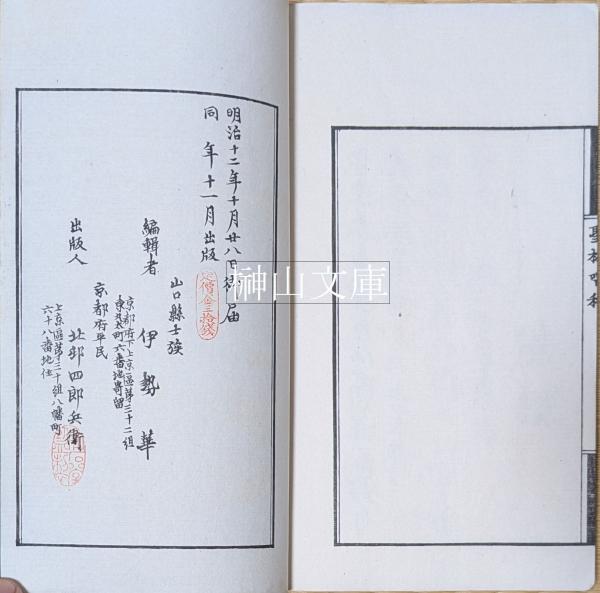 明治十二年十月廿八日御届
同年十一月出版
定價金三拾錢
山口縣士族
編輯者 伊勢華
京都府下上京區第三十二組
東丸太町六番地寄留
京都府平民
出版人 北邨四郎兵衞
上京區第三十組八幡町
六十八番地住
榊山文庫